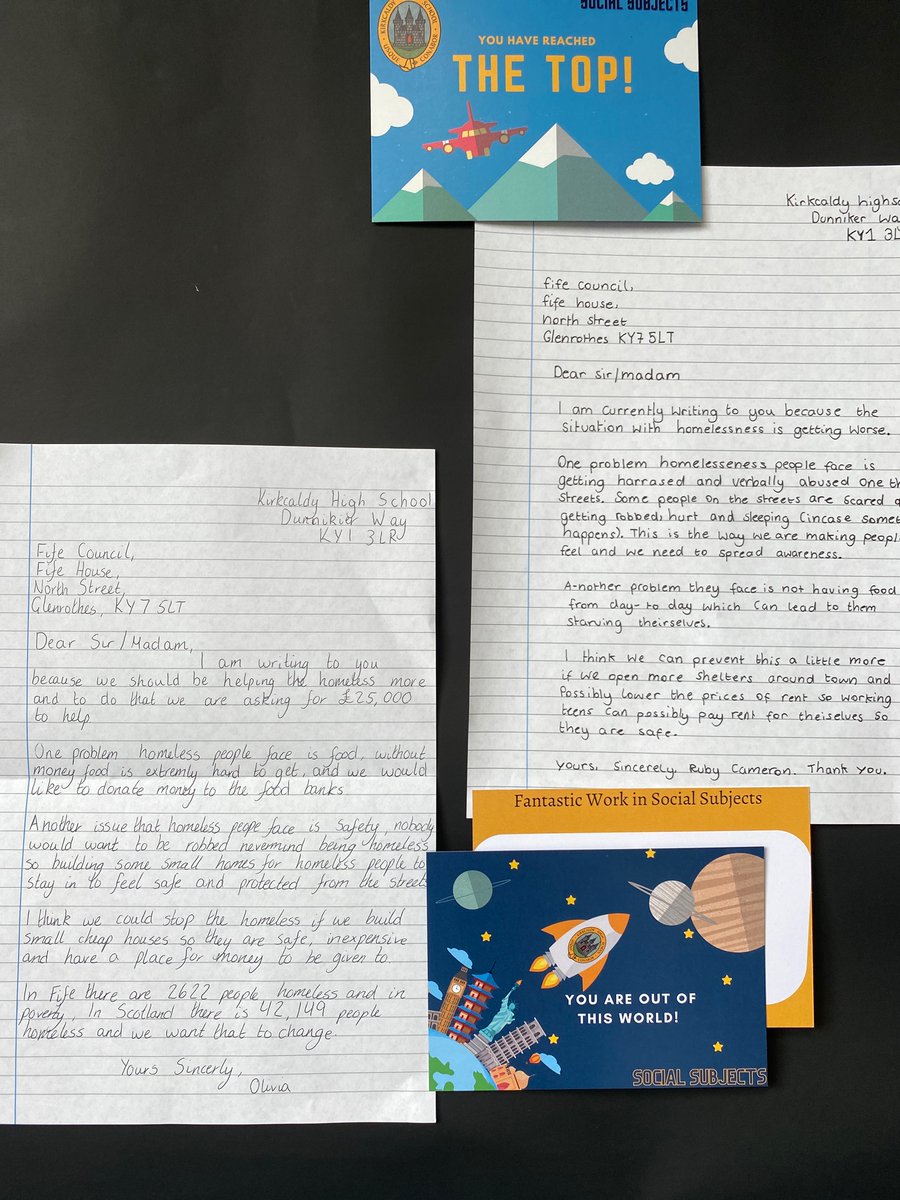 SOCIAL SUBJECTS
KIRKCALDY HIGH SCHOOL
USQUE CONABOR
YOU HAVE REACHED
THE TOP!
Kirkcaldy highsc
Dunniker Wa
KY1 3L
fife council,
fife house,
north street
Glenrothes KY7 5LT
Dear sir/madam
I am currently writing to you because the
situation with homelessness is getting worse.
One problem homelesseness people face is
getting harrased and verbally abused one th
streets. Some people on the streets are scared o
getting robbed, hurt and sleeping (incase somet
happens). This is the way we are making people
feel and we need to spread awareness.
A-nother problem they face is not having food
from day-to day which can lead to them
starving theirselves.
I think we can prevent this a little more
if we open more shelters around town and
possibly lower the prices of rent so working
teens can possibly pay rent for theiselves so
they are safe.
Yours, Sincerely, Ruby Cameron. Thank you.
Kirkcaldy High School
Dunnikier Way
KY1 3LR
Fife Council,
Fife House,
North Street,
Glenrothes, KY7 5LT
Dear Sir/Madam,
I am writing to you
because we should be helping the homeless more
and to do that we are asking for £25,000
to help
One problem homeless people face is food, without
money food is extremly hard to get, and we would
like to donate money to the food banks
Another issue that homeless peope face is safety, nobody
would want to be robbed nevermind being homeless
so building some small homes for homeless people to
stay in to feel safe and protected from the streets
I think we could stop the homeless if we build
small cheap houses so they are safe, inexpensive
and have a place for money to be given to.
In Fife there are 2622 people homeless and in
poverty, In Scotland there is 42,149 people
homeless and we want that to change.
Yours Sincerly,
Olivia
Fantastic Work in Social Subjects
YOU ARE OUT OF
THIS WORLD!
SOCIAL SUBJECTS